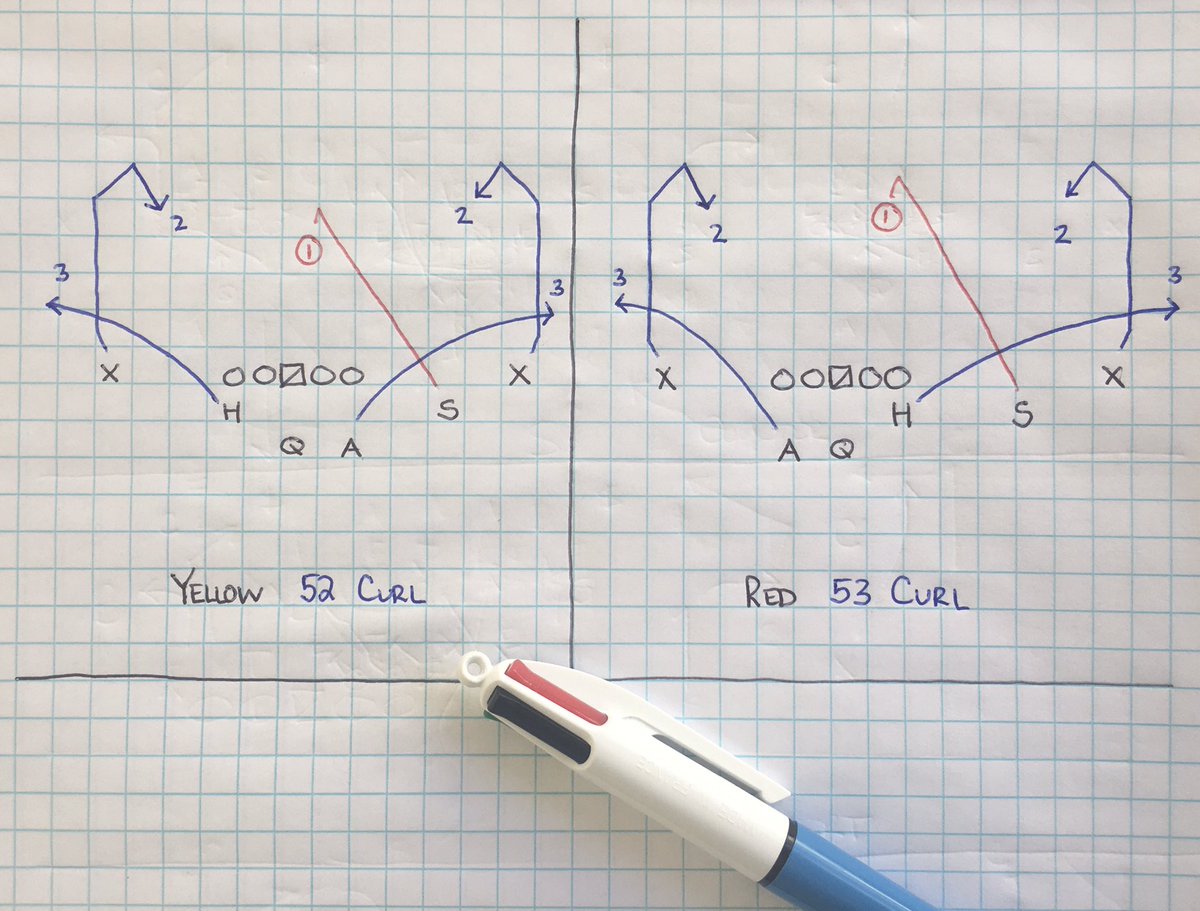 2
2
1
3
3
X
X
H
S
Q A
YELLOW 52 CURL
2
2
1
3
3
X
X
H
S
A Q
RED 53 CURL